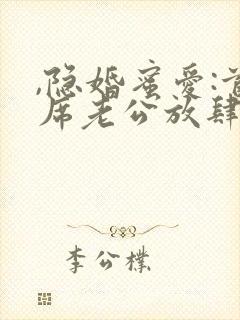 ,隐婚蜜爱:首
席老公放肆
李公樸